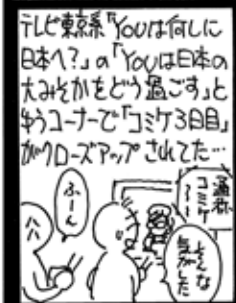 テレビ東京系「YOUは何しに
日本へ?」の「YOUは日本の
大みそかをどう過ごす」と
いうコーナーで「コミケ3日目」
がクローズアップされてた…
通称
コミケ
〜〜
ふーん
そんな
気がした
ハハ